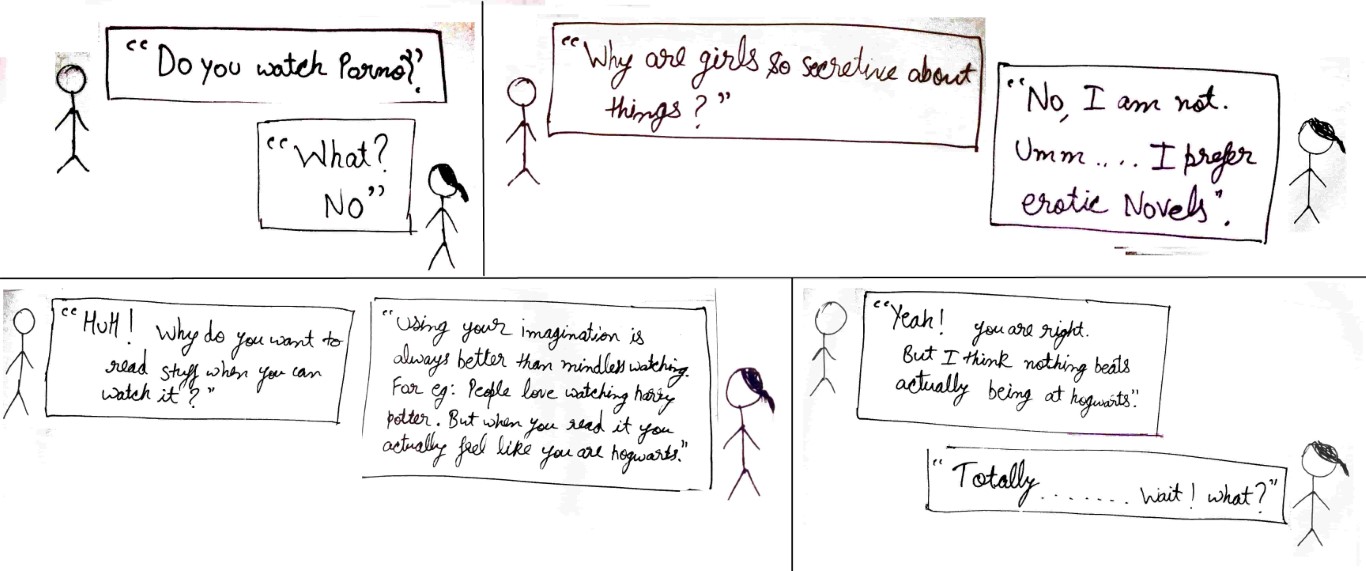 "Do you watch Porno?"
"What?
No"
"Why are girls so secretive about
things?"
"No, I am not.
Umm.... I prefer
erotic Novels".
"HuH! Why do you want to
read stuff when you can
watch it?"
"Using your imagination is
always better than mindless watching.
For eg: People love watching harry
potter. But when you read it you
actually feel like you are hogwarts."
"Yeah! you are right.
But I think nothing beats
actually being at hogwarts."
"Totally....... wait! what?"